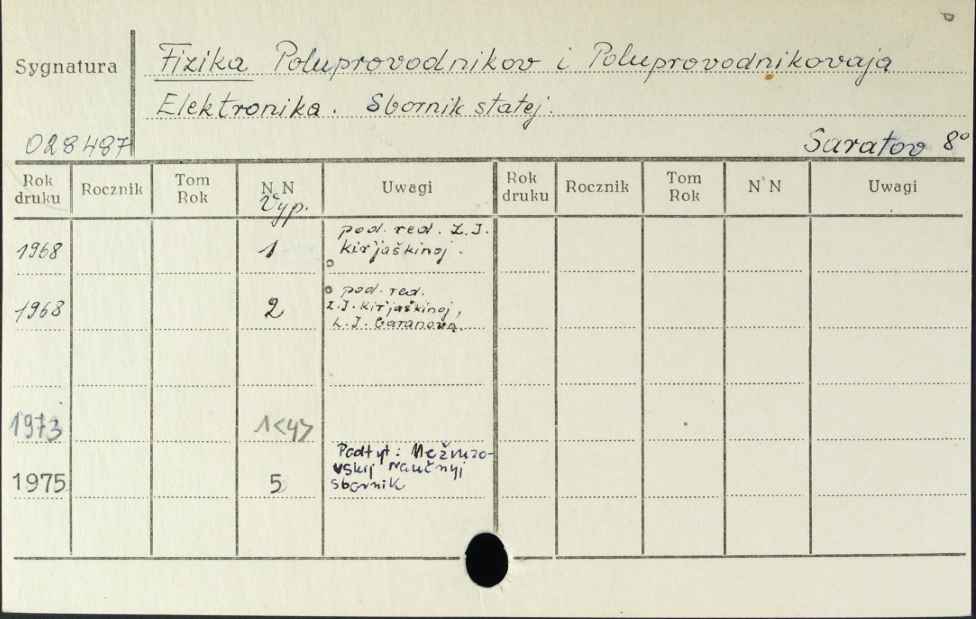 Sygnatura
Fizika Poluprovodnikov i Poluprovodnikovaja
Elektronika. Sbornik statej.
028487
Saratov 8°
Rok druku Rocznik Tom Rok N N Uwagi Rok druku Rocznik Tom Rok N N Uwagi
Vyp.
1968 1 pod. red. Z. I.
kirjaškinoj.
1968 2 pod. red.
Z. I. kirjaškinoj,
L. I. Baranova.
1973 1<4>
1975 5 Podtyt: Mežvuzo-
vskij naučnyj
sbornik